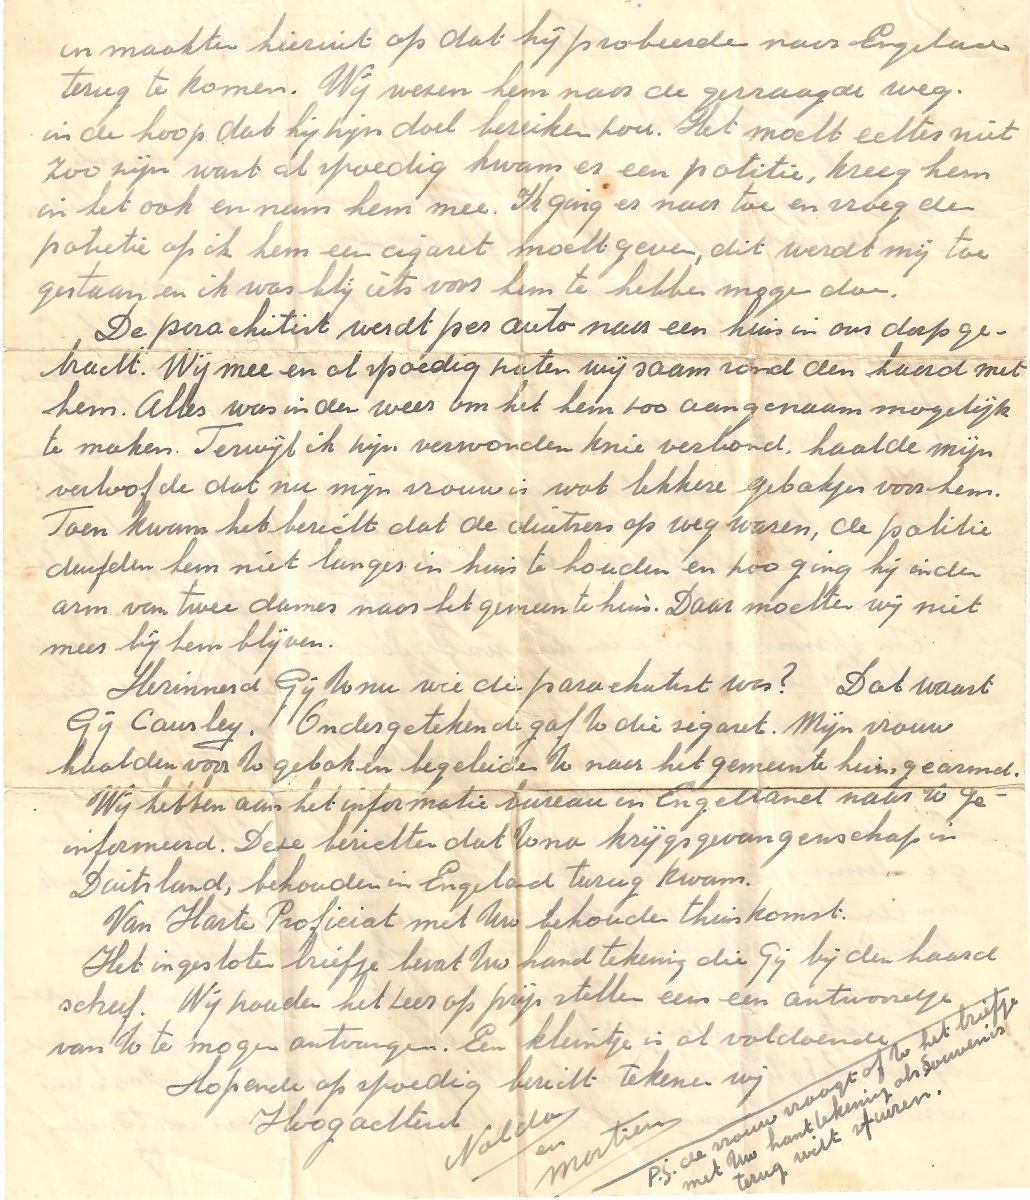 en maakten hieruit op dat hij probeerde naar Engeland
terug te komen. Wij wezen hem naar de gevraagde weg.
in de hoop dat hij zijn doel bereiken zou. Het mocht echter niet
zoo zijn want al spoedig kwam er een politie, kreeg hem
in het ook en nam hem mee. Ik ging er naar toe en vroeg de
polietie op ik hem een cigaret mocht geven, dit werdt mij toe
gestaan en ik was blij iets voor hem te hebbe moge doe.
De parachutist werdt per auto naar een huis in ons dorp ge-
bracht. Wij mee en al spoedig zaten wij saam rond den haard met
hem. Alles was in der weer om het hem zoo aangenaam mogelijk
te maken. Terwijl ik zijn verwonden knie verbond, haalde mijn
verloofde dat nu mijn vrouw is wat lekkere gebakjes voor hem.
Toen kwam het bericht dat de duitsers op weg waren, de politie
durfden hem niet langer in huis te houden en zoo ging hij in den
arm van twee dames naar het gemeentehuis. Daar mochten wij niet
meer bij hem blijven.
Herinnerd Gij U nu wie die parachutist was? Dat waart
Gij Causley. Ondergetekende gaf U die sigaret. Mijn vrouw
haalden voor U gebak en begeleide U naar het gemeente huis gearmd.
Wij hebben aan het informatie bureau in Engeland naar U ge-
informeerd. Deze berichten dat U na krijgsgevangenschap in
Duitsland, behouden in Engeland terug kwam.
Van Harte Proficiat met Uw behouden thuiskomst.
Het ingesloten briefje bevat Uw handtekening die Gij bij den haard
schreef. Wij zouden het zeer op prijs stellen eens een antwoordje
van U te mogen ontvangen. Een kleintje is al voldoende
Hopende op spoedig bericht tekenen wij
Hoogachtend
Nolda
en
Martien
P.S. de vrouw vraagt of U het briefje
met Uw hantekening als Souvenier
terug wilt sturen.